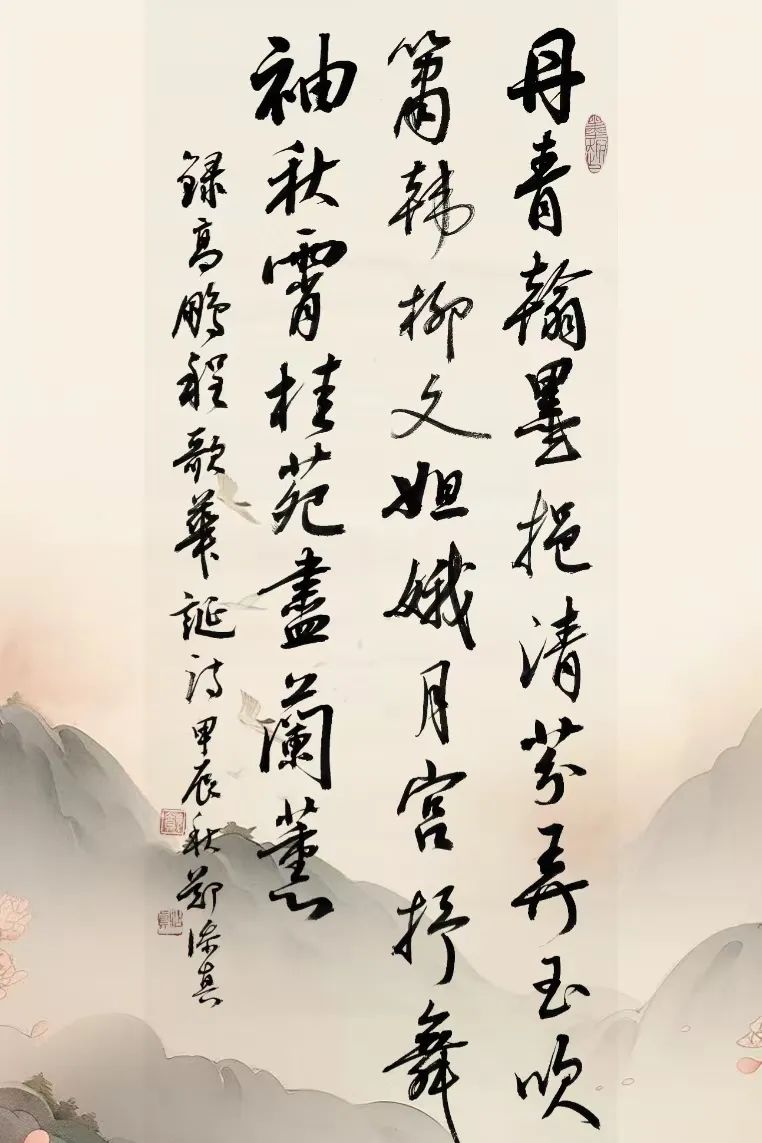 丹青翰墨挹清芬弄玉吹
簫韓柳文姮娥月宫抒舞
袖秋霄桂苑盡蘭薰
録高鹏程歌華誕诗甲辰秋鄭真